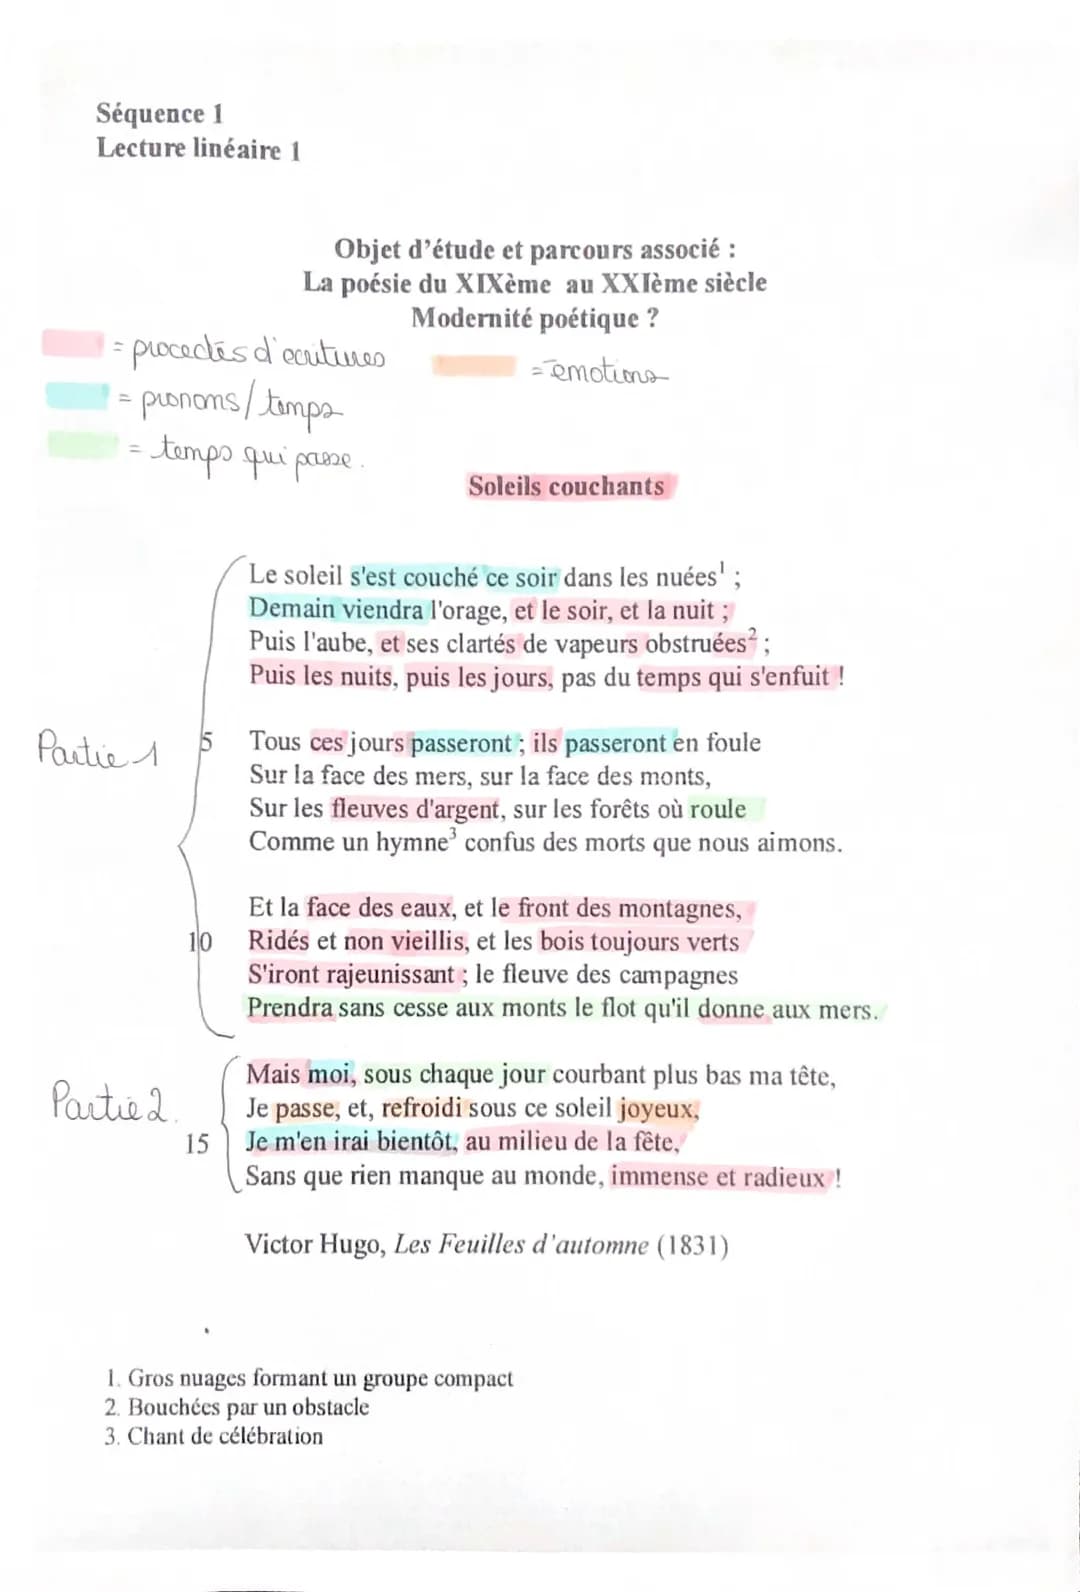 Séquence 1
Lecture linéaire 1
Objet d'étude et parcours associé :
La poésie du XIXème au XXIème siècle
Modernité poétique ?
= procedés d'ecritures
= émotions
= pronoms/temps
= temps qui passe.
Soleils couchants
Le soleil s'est couché ce soir dans les nuées¹ ;
Demain viendra l'orage, et le soir, et la nuit ;
Puis l'aube, et ses clartés de vapeurs obstruées² ;
Puis les nuits, puis les jours, pas du temps qui s'enfuit !
Partie 1
5 Tous ces jours passeront ; ils passeront en foule
Sur la face des mers, sur la face des monts,
Sur les fleuves d'argent, sur les forêts où roule
Comme un hymne³ confus des morts que nous aimons.
Et la face des eaux, et le front des montagnes,
10 Ridés et non vieillis, et les bois toujours verts
S'iront rajeunissant ; le fleuve des campagnes
Prendra sans cesse aux monts le flot qu'il donne aux mers.
Partie 2.
Mais moi, sous chaque jour courbant plus bas ma tête,
Je passe, et, refroidi sous ce soleil joyeux,
15 Je m'en irai bientôt, au milieu de la fête,
Sans que rien manque au monde, immense et radieux !
Victor Hugo, Les Feuilles d'automne (1831)
1. Gros nuages formant un groupe compact
2. Bouchées par un obstacle
3. Chant de célébration